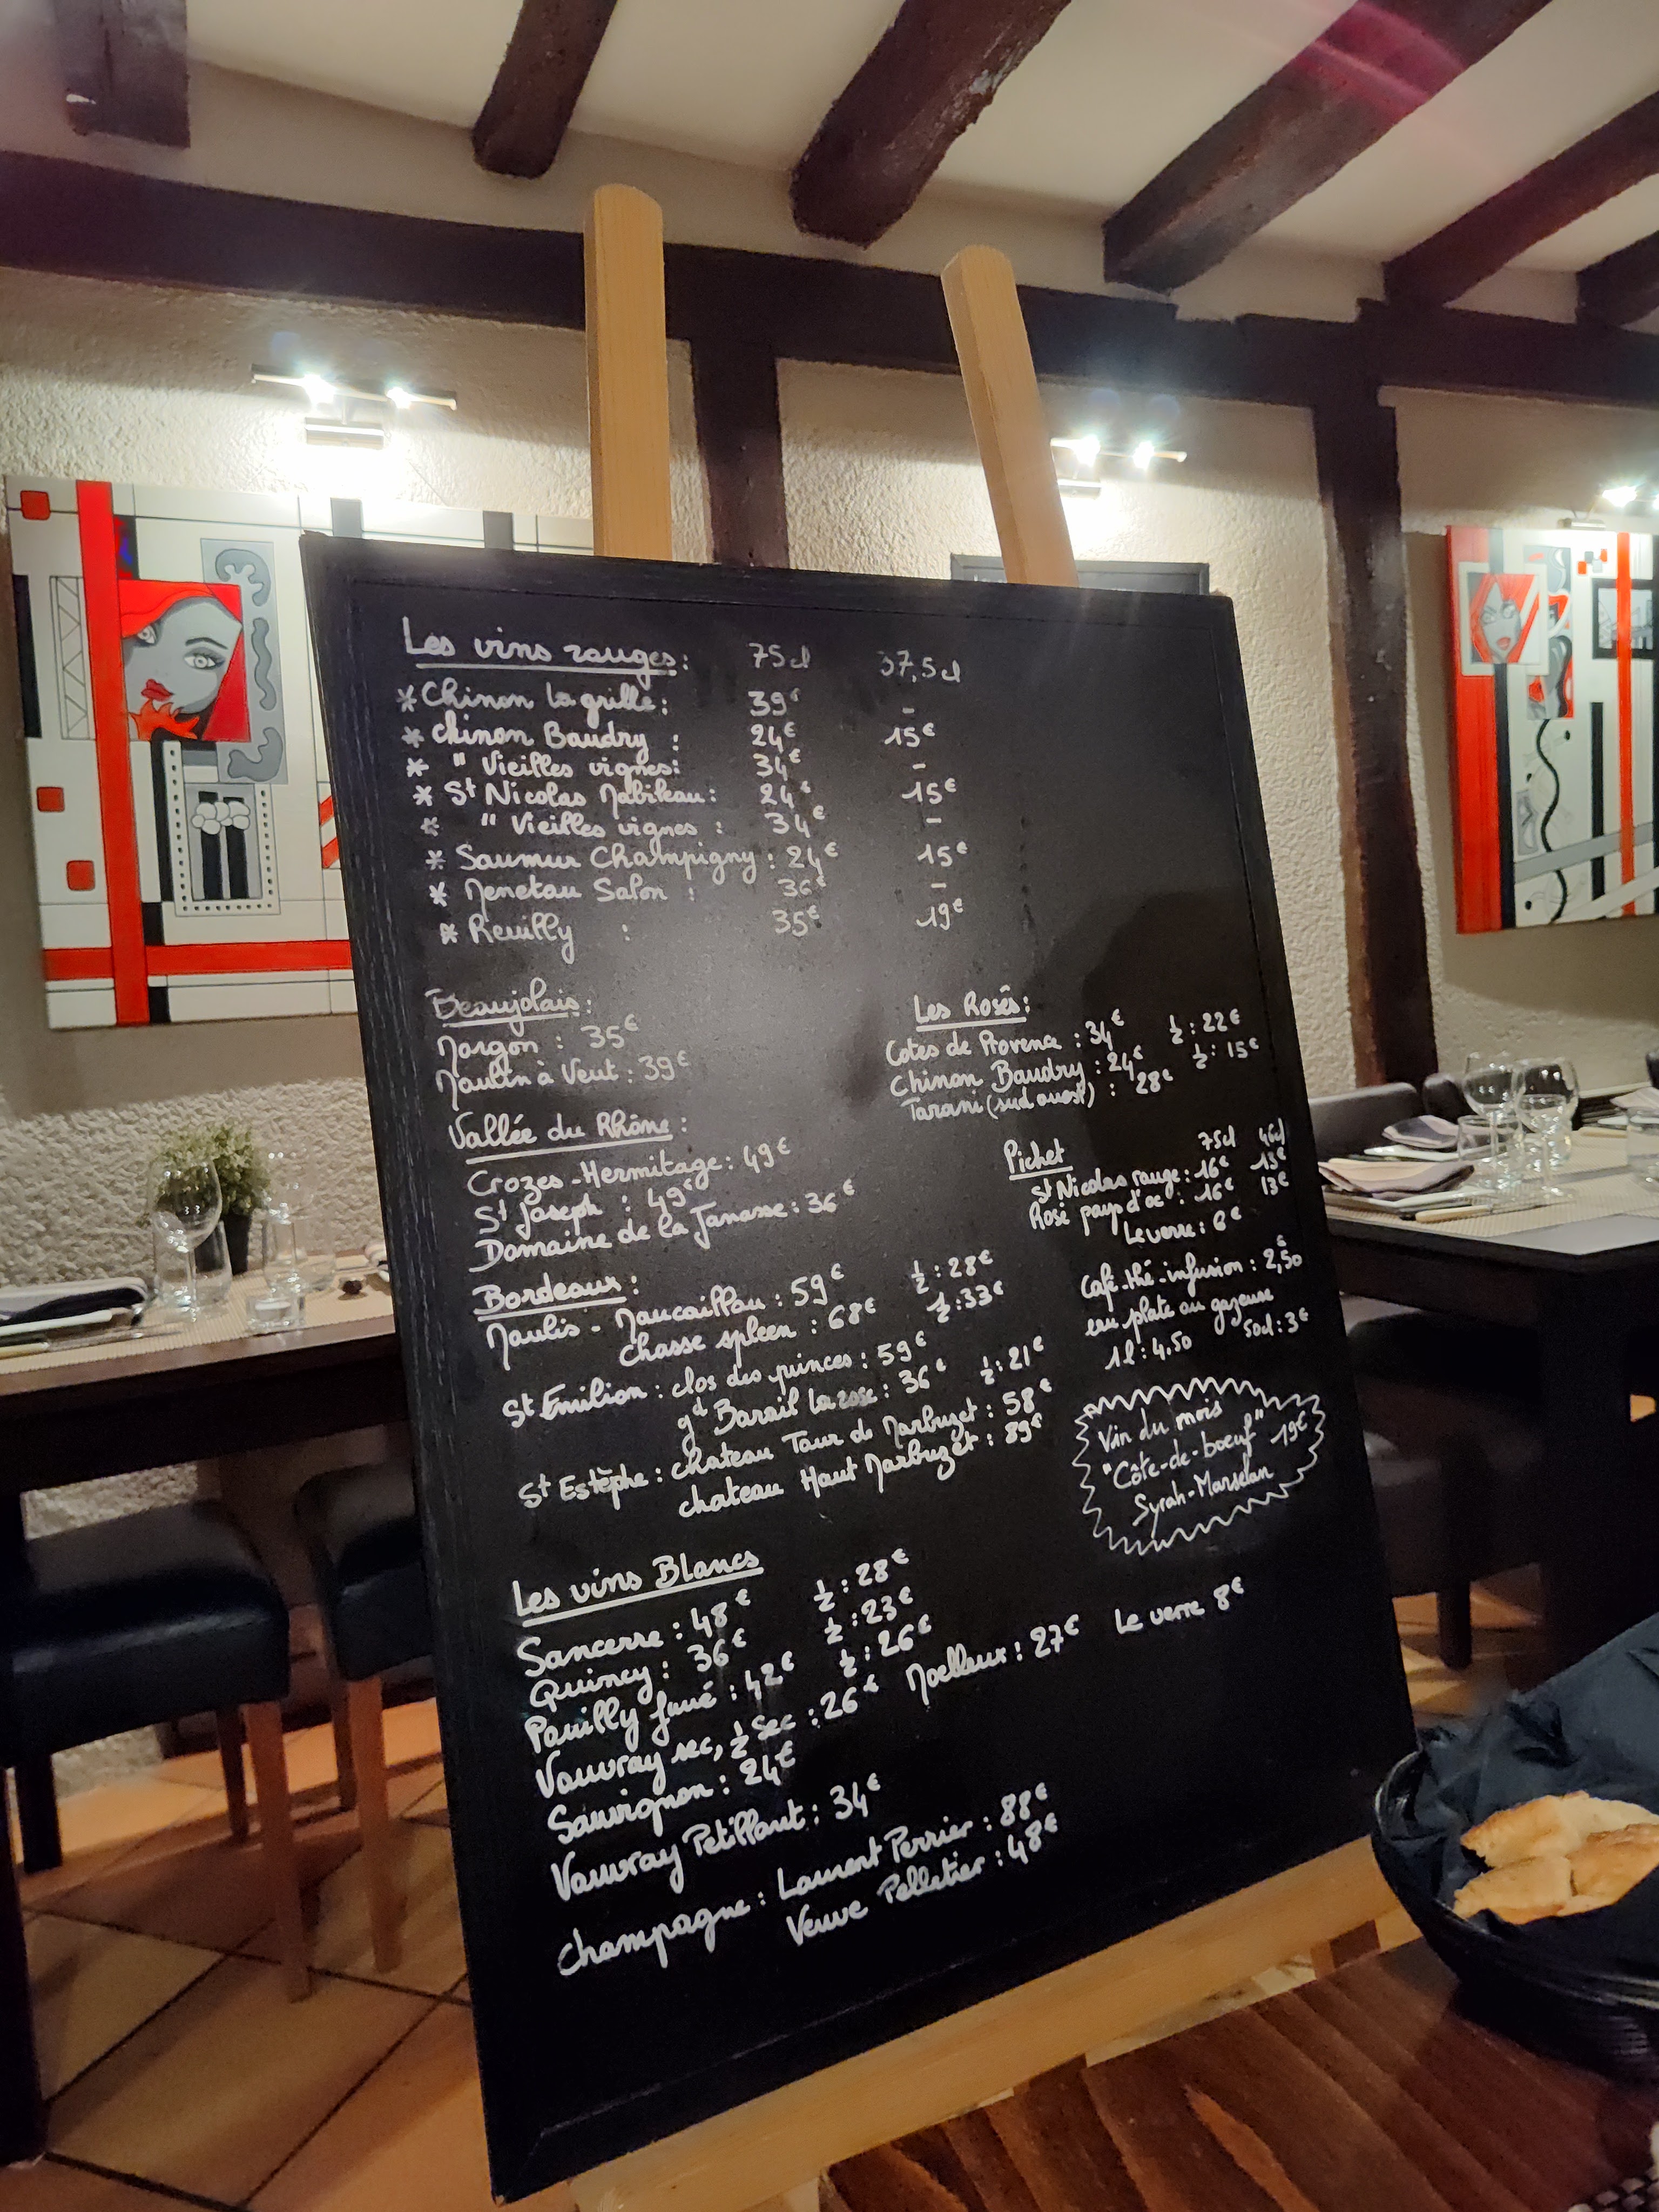 Les vins rouges: 75cl 37,5cl
* Chinon la grille: 39€ -
* Chinon Baudry : 24€ 15€
* " Vieilles vignes: 34€ -
* St Nicolas Mabileau: 24€ 15€
* " Vieilles vignes : 34€ -
* Saumur Champigny : 24€ 15€
* Menetou Salon : 36€ -
* Reuilly : 35€ 19€
Beaujolais:
Morgon : 35€
Moulin à Vent : 39€
Vallée du Rhône :
Crozes-Hermitage : 49€
St Joseph : 49€
Domaine de la Janasse : 36€
Bordeaux :
Moulis - Maucaillou : 59€ ½ : 28€
chasse spleen : 68€ ½ : 33€
St Emilion : clos des princes : 59€
gd Barail la rose : 36€ ½ : 21€
St Estèphe : chateau Tour de Marbuzet : 58€
chateau Haut Marbuzet : 89€
Les Rosés :
Cotes de Provence : 34€ ½ : 22€
Chinon Baudry : 24€ ½ : 15€
Tarani (sud ouest) : 28€
Pichet 75cl 46cl
St Nicolas rouge : 16€ 13€
Rosé pays d'oc : 16€ 13€
Le verre : 6€
Café-thé-infusion : 2,50€
eau plate ou gazeuse
1l : 4,50 50cl : 3€
Vin du mois
"Côte-de-boeuf" 19€
Syrah-Marselan
Les vins Blancs
Sancerre : 48€ ½ : 28€
Quincy : 36€ ½ : 23€
Pouilly fumé : 42€ ½ : 26€
Vouvray sec, ½ Sec : 26€ Moelleux : 27€ Le verre 8€
Sauvignon : 24€
Vouvray Petillant : 34€
Champagne : Laurent Perrier : 88€
Veuve Pelletier : 48€